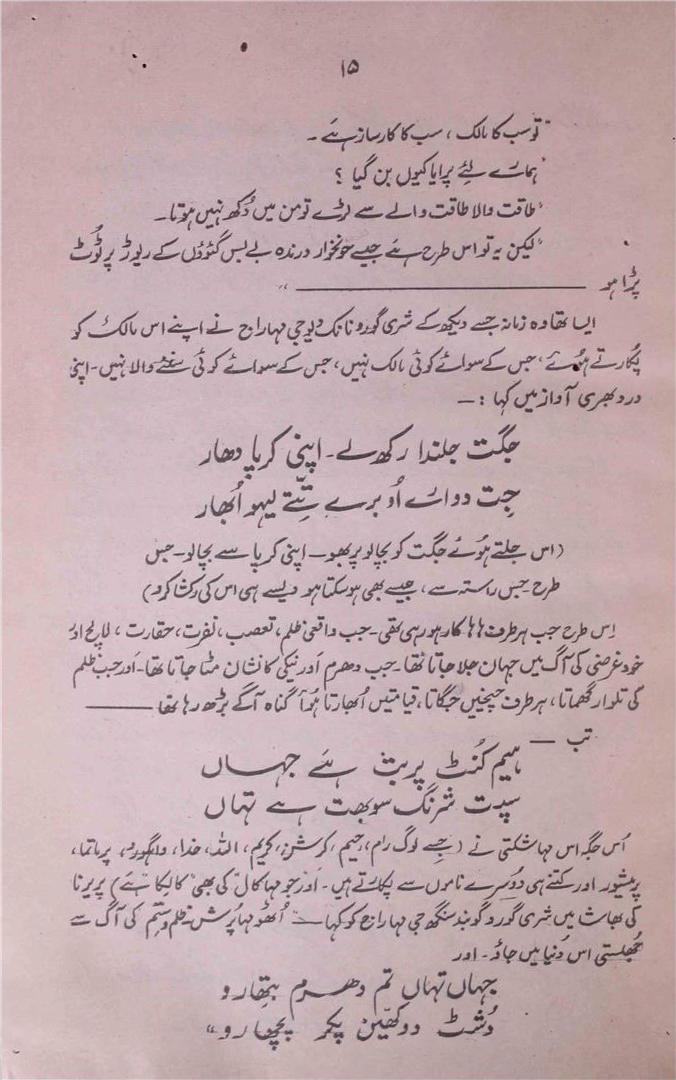 ۱۵
"تو سب کا مالک ، سب کا کارساز ہے ۔
"ہمارے لئے پرایا کیوں بن گیا ؟
"طاقت والا طاقت والے سے لڑے تو من میں دُکھ نہیں ہوتا۔
"لیکن یہ تو اس طرح ہے جیسے خونخوار درندہ بے بس گئوؤں کے ریوڑ پر ٹُوٹ
پڑا ہو ــــــــــــــــ"
ایسا تھا وہ زمانہ جسے دیکھ کے شری گورو نانک دیو جی مہاراج نے اپنے اس مالک کو
پُکارتے ہوُئے، جس کے سوائے کوئی مالک نہیں، جس کے سوائے کوئی سننے والا نہیں۔ اپنی
درد بھری آواز میں کہا :۔
جگت جلندا رکھ لے۔ اپنی کرپا دھار
جِت دوارے اُوبرے تِتّے لیہو اُبھار
(اس جلتے ہوُئے جگت کو بچالو پربھو۔ اپنی کرپا سے بچالو۔ جس
طرح جس راستہ سے، جیسے بھی ہو سکتا ہو ویسے ہی اس کی رکشا کرو)
اِس طرح جب ہر طرف ہاہا کار ہو رہی تھی۔ جب واقعی ظلم، تعصب، نفرت، حقارت ، لالچ اور
خود غرضی کی آگ میں جہان جلا جاتا تھا۔ جب دھرم اور نیکی کا نشان مٹا جاتا تھا۔ اور جب ظلم
کی تلوار گھماتا، ہر طرف چیخیں جگاتا، قیامتیں اُبھارتا ہوُا گناہ آگے بڑھ رہا تھا ــــــــ
تب ــــ
ہیم کُنٹ پربت ہے جہاں
سپت شرنگ سوبھت ہے تہاں
اُس جگہ اس مہاشکتی نے (جِسے لوگ رام، رحیم، کرشن، کریم، اللہ، خدا، واہگورو، پرماتما،
پرمیشور اور کتنے ہی دُوسرے ناموں سے پکارتے ہیں۔ اور جو مہا کال کی بھی کالکا ہے) پریرنا
کی بھاشا میں شری گورو گوبند سنگھ جی مہاراج کو کہا ــــ اُٹھو مہا پُرش۔ ظلم و ستم کی آگ سے
جھُلستی اس دُنیا میں جاؤ۔ اور
جہاں تہاں تم دھرم بتھارو
دُشٹ دوکھین پکر پچھارو"